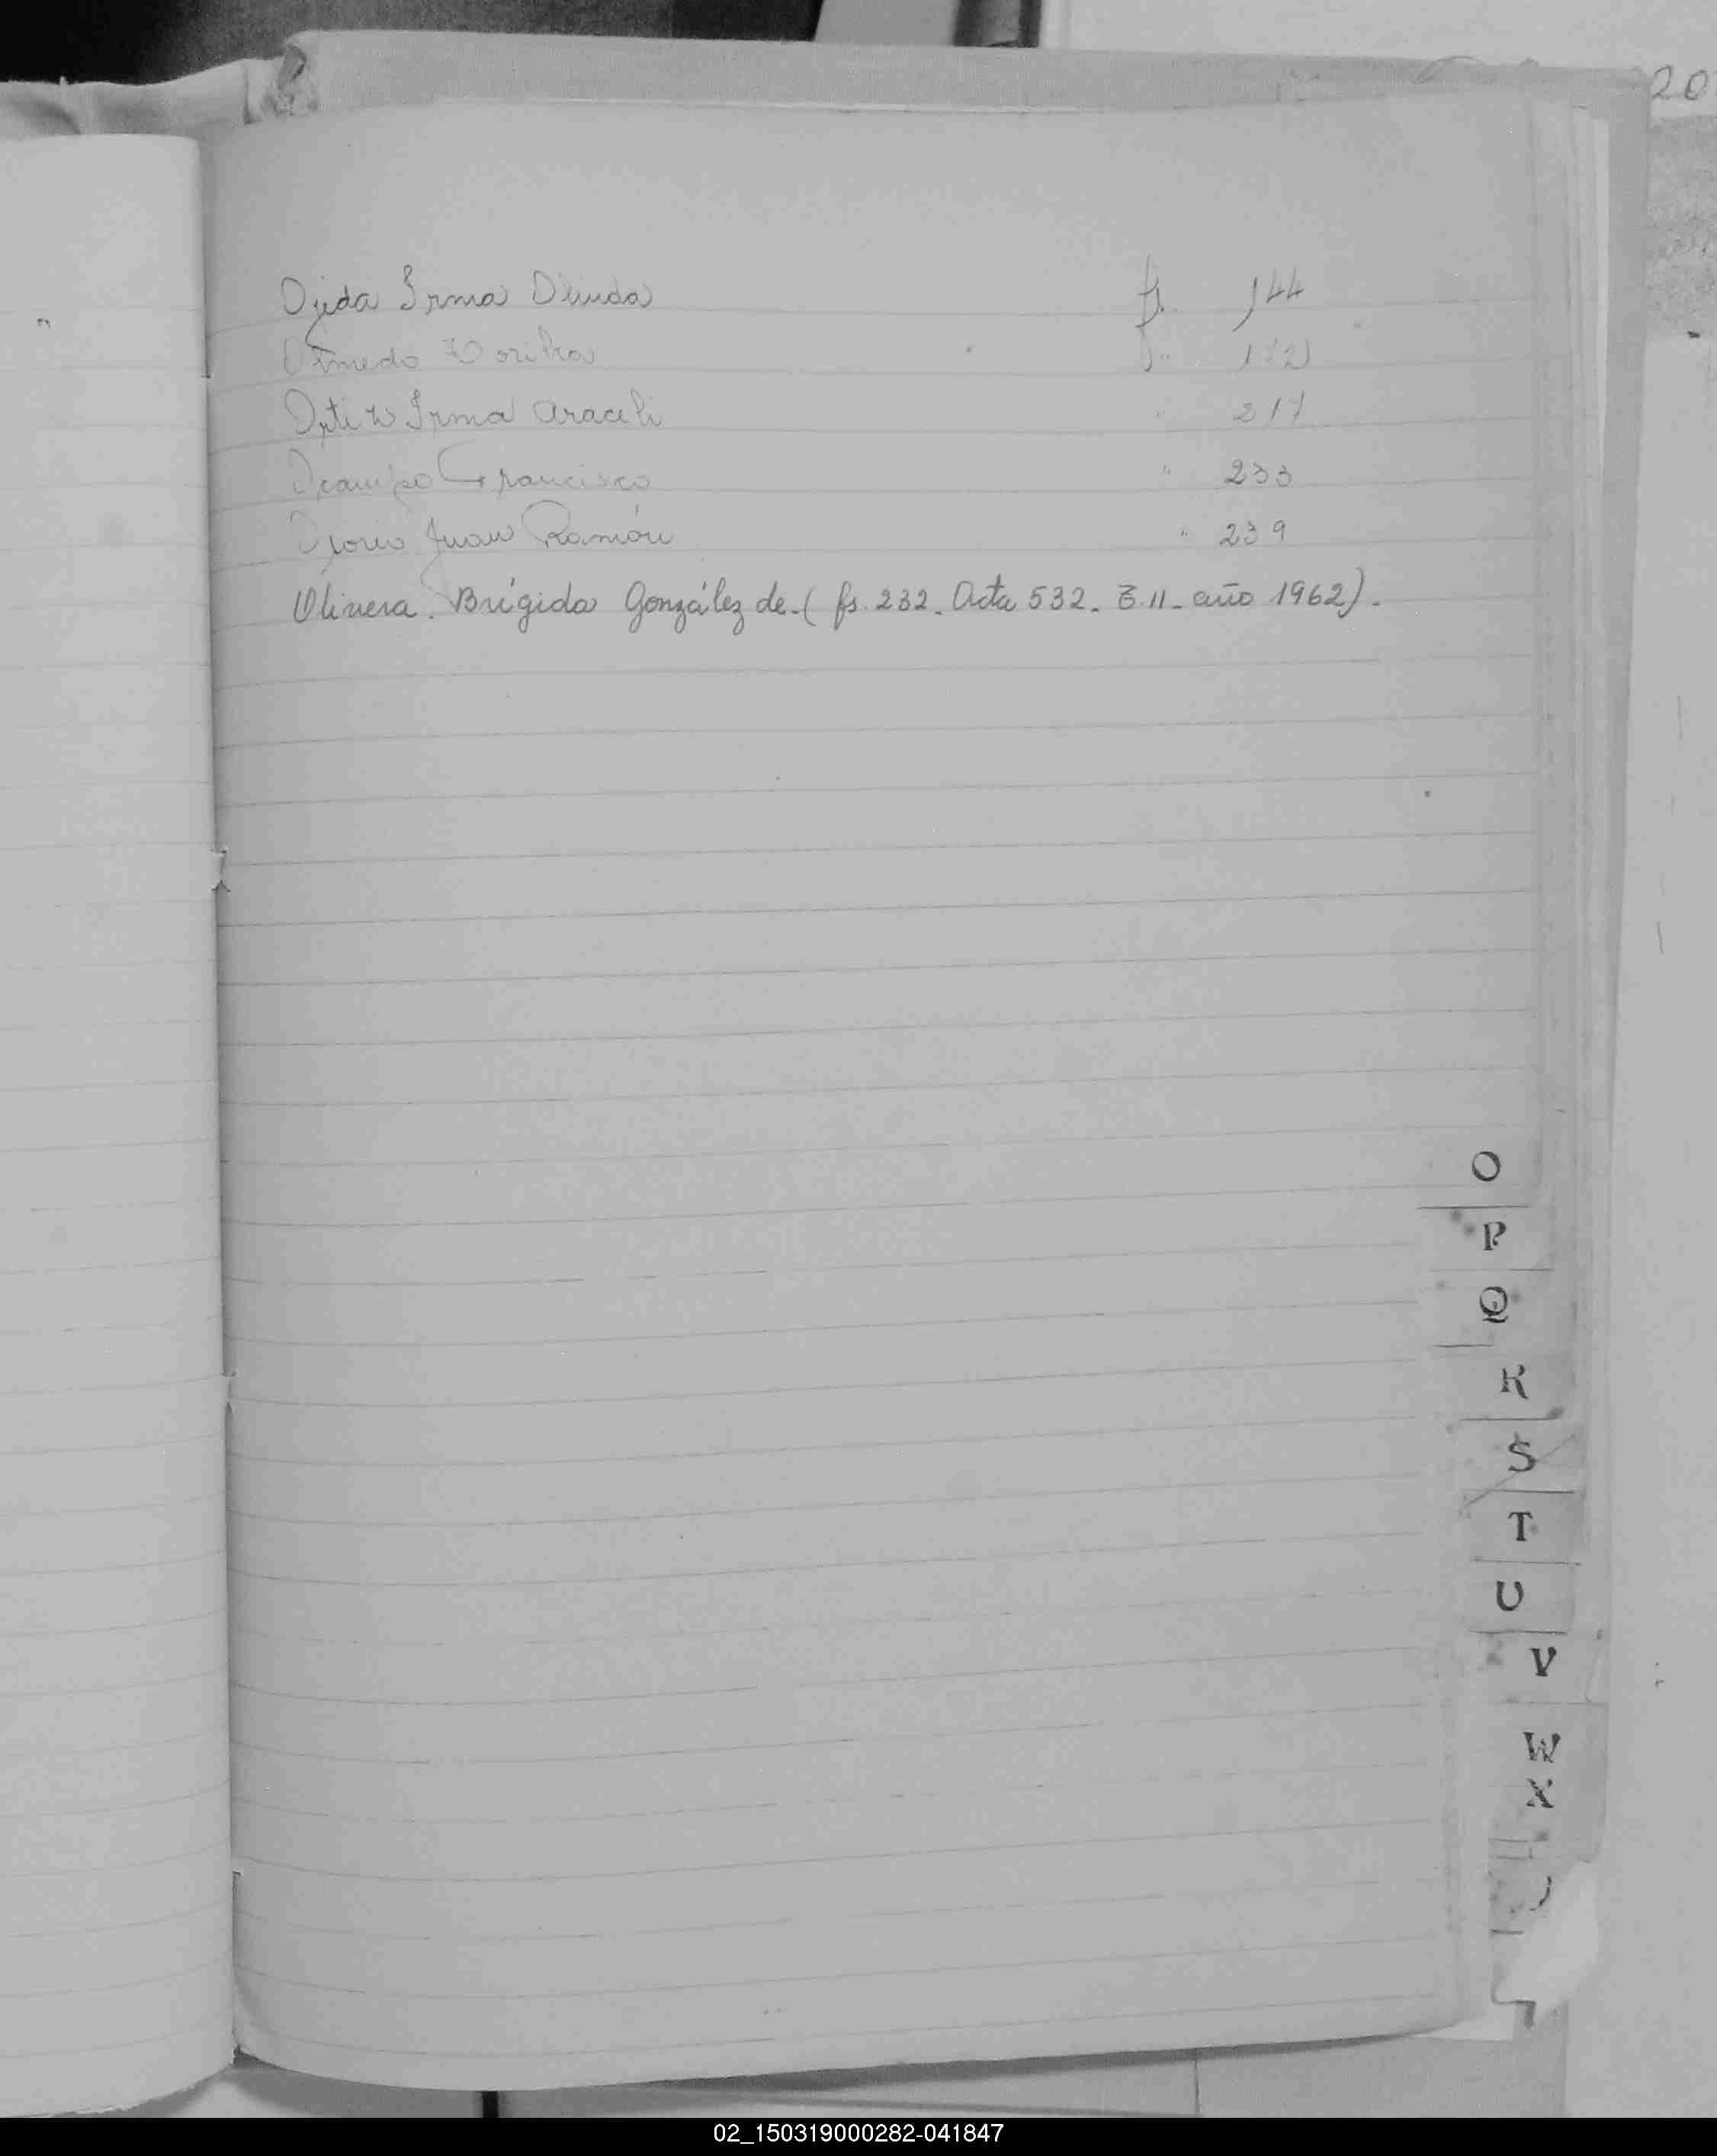 20
Ojeda Irma D'linda fs. 144
Olmedo " 1
Ortiz Irma Araceli " 217
Ocampo Francisco " 233
Osorio Juan Ramón " 239
Olivera. Brígida González de.( fs. 232. Acta 532. T. II. año 1962).
O
P
Q
R
S
T
U
V
W
X
02_150319000282-041847